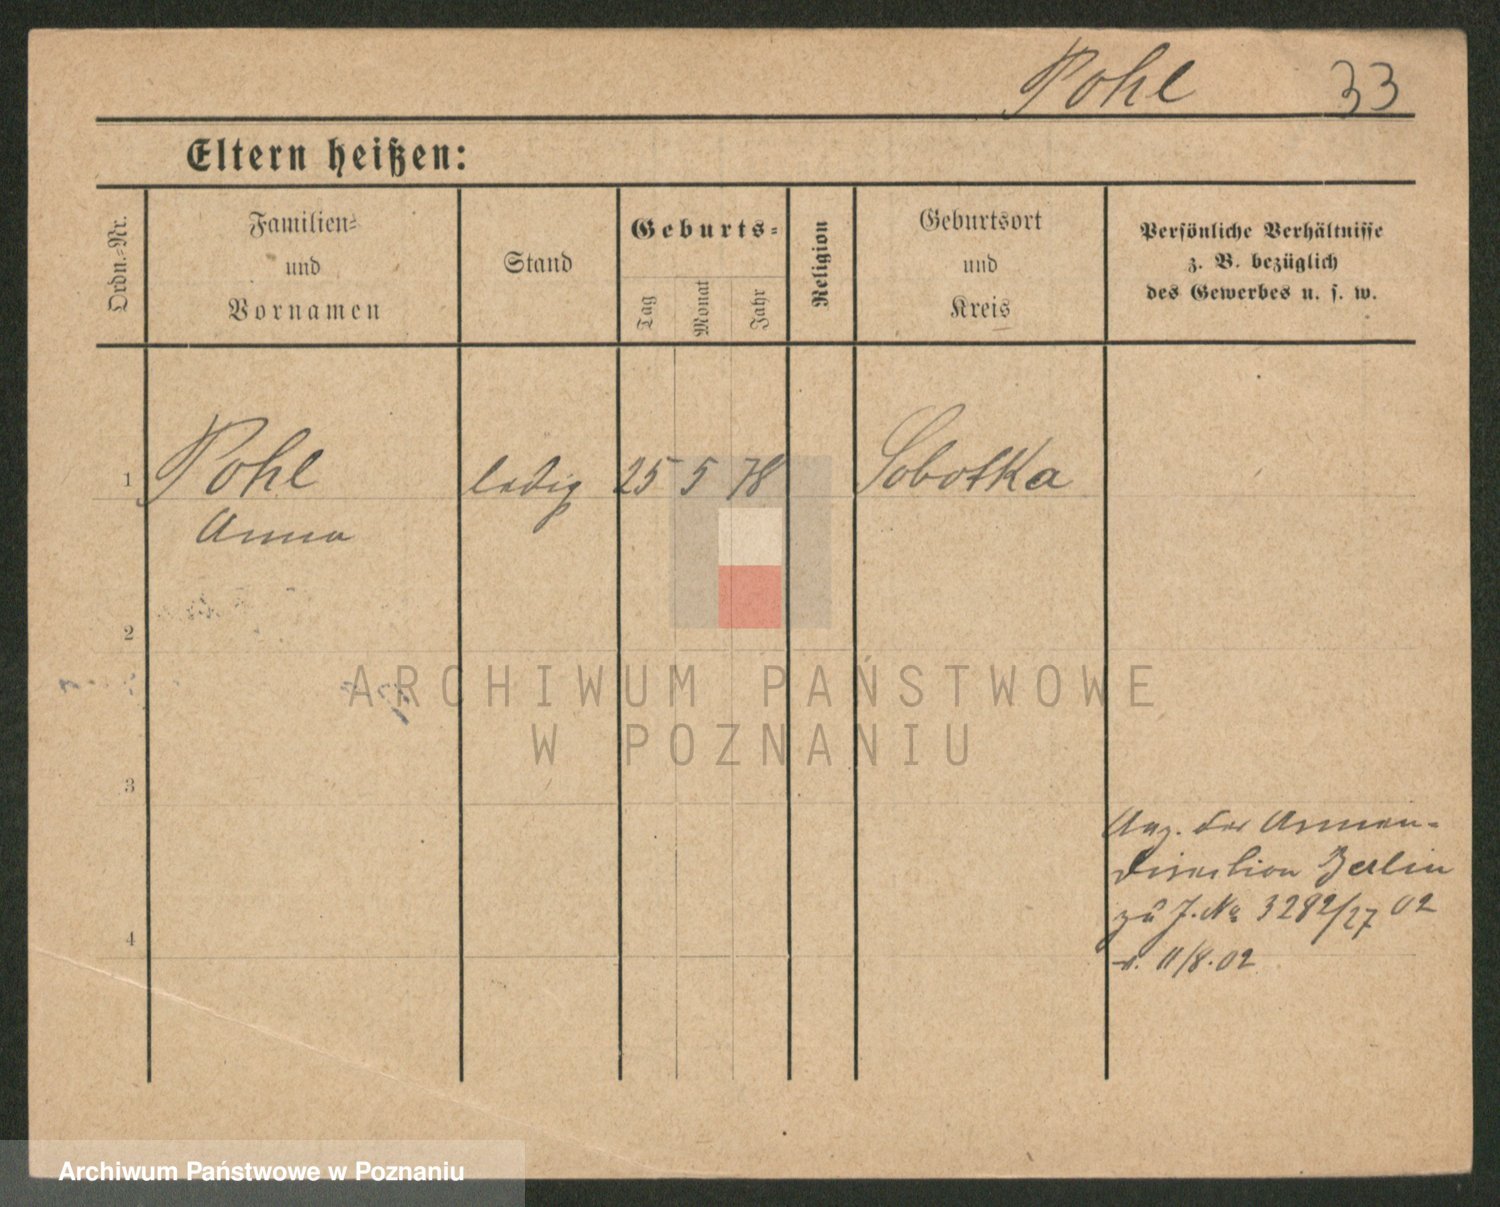 Pohl 33
Eltern heißen:
Ordn.-Nr.
Familien-
und
Vornamen
Stand
Geburts-
Tag
Monat
Jahr
Religion
Geburtsort
und
Kreis
Persönliche Verhältnisse
z. B. bezüglich
des Gewerbes u. s. w.
1 Pohl ledig 25 5 78 Sobotka
Anna
2
ARCHIWUM PAŃSTWOWE
W POZNANIU
3
Ang. der Armen-
Direction Berlin
zu J. No 3282/27 02
v. 11/8.02
4
Archiwum Państwowe w Poznaniu